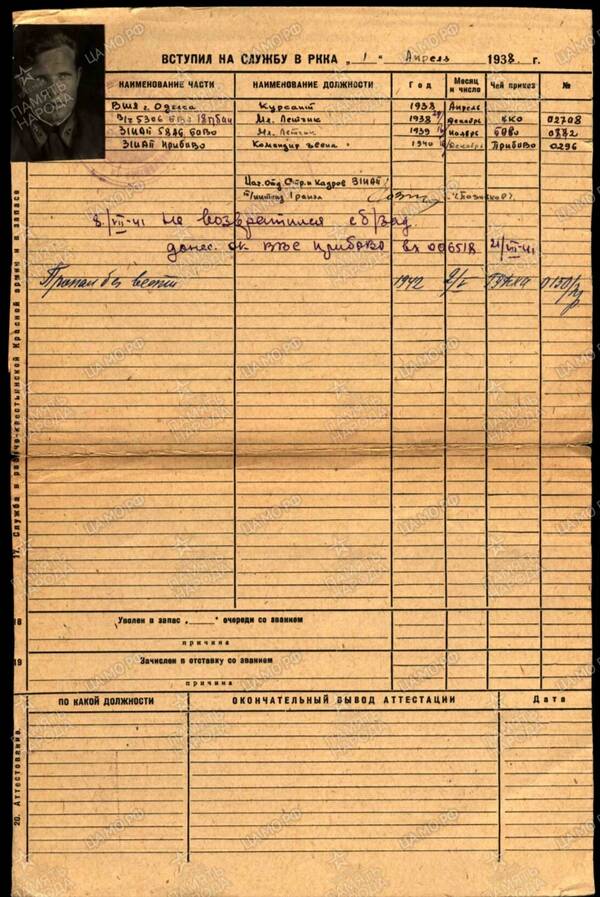 ВСТУПИЛ НА СЛУЖБУ В РККА „1“ Апрель 1938 г.
НАИМЕНОВАНИЕ ЧАСТИ НАИМЕНОВАНИЕ ДОЛЖНОСТИ Год Месяц и число Чей приказ №
ВШЛ г. Одесса Курсант 1938 Апрель
В/ч 5306 Мл. Летчик 1938 декабрь ККО 02708
31ИАП 58АБ БОВО Мл. Летчик 1939 Ноябрь БОВО 0882
31ИАП ПриБОВО Командир звена 1940 Декабрь ПриБОВО 0296
Нач. отд. Стр. и Кадров 31ИАП
т/интенд. 1 ранга
8/VII-41 не возвратился с б/зад.
донес. ОК ВВС ПриБОВО вх 006518 21/VII-41
Пропал без вести 1942 2/I ГУФКА 0150
17. Служба в рабоче-крестьянской Красной армии и в запасе
18 Уволен в запас „ “ очереди со званием
причина
19 Зачислен в отставку со званием
причина
20. Аттестование.
ПО КАКОЙ ДОЛЖНОСТИ ОКОНЧАТЕЛЬНЫЙ ВЫВОД АТТЕСТАЦИИ Дата
ПАМЯТЬ НАРОДА
ЦАМО.РФ